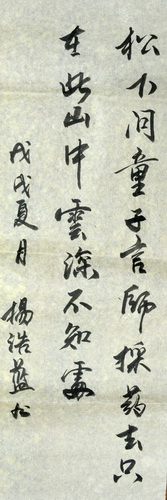 松下问童子言師採药去只
在此山中雲深不知處
戊戌夏月
楊浩藍书